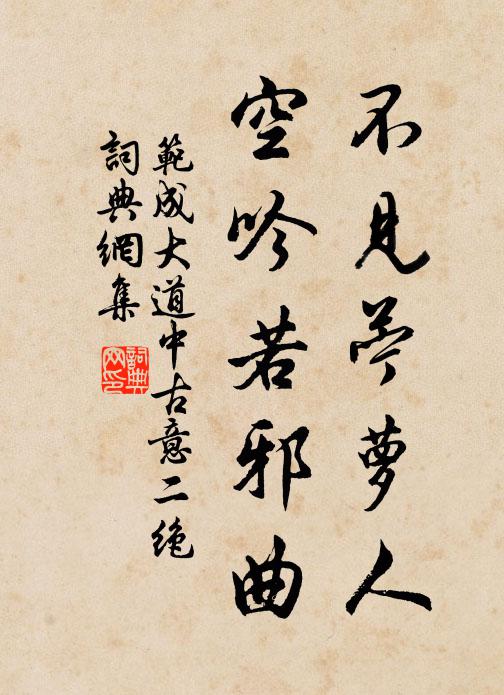 不見苎萝人
空吟若邪曲
範成大道中古意二絶
詞典網集
詞典
网印